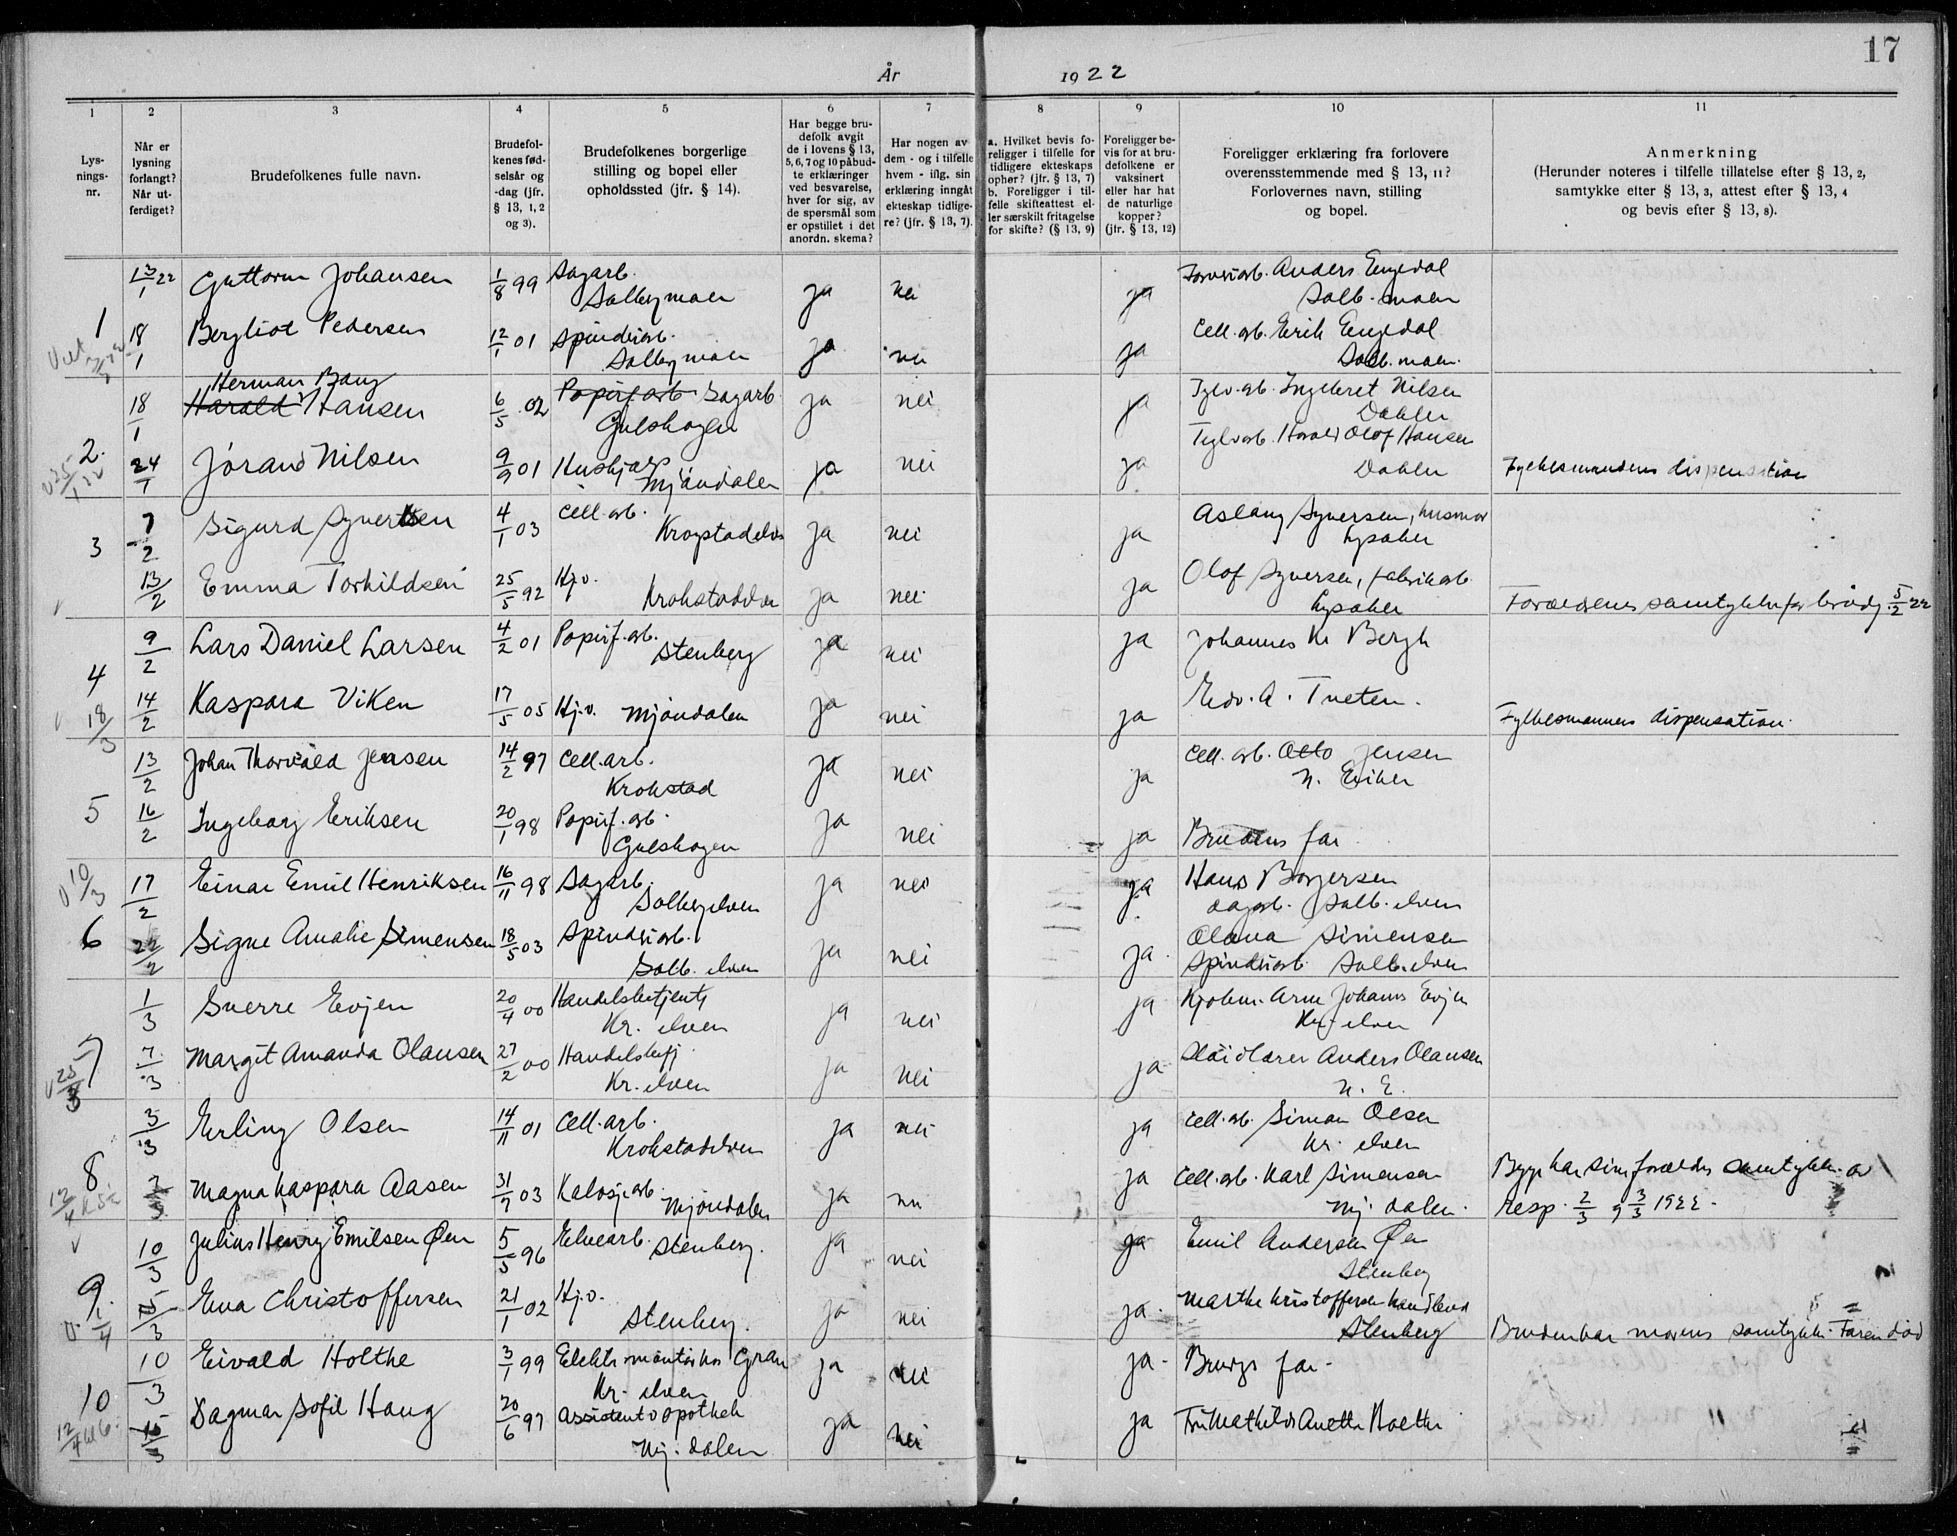 17
År 1922
1 2 3 4 5 6 7 8 9 10 11
Lys-
nings-
nr.
Når er
lysning
forlangt?
Når ut-
ferdiget?
Brudefolkenes fulle navn.
Brudefol-
kenes fød-
selsår og
-dag (jfr.
§ 13, 1, 2
og 3).
Brudefolkenes borgerlige
stilling og bopel eller
opholdssted (jfr. § 14).
Har begge bru-
defolk avgit
de i lovens § 13,
5, 6, 7 og 10 påbud-
te erklæringer
ved besvarelse,
hver for sig, av
de spørsmål som
er opstillet i det
anordn. skema?
Har nogen av
dem - og i tilfelle
hvem - iflg. sin
erklæring inngåt
ekteskap tidlige-
re? (jfr. § 13, 7).
a. Hvilket bevis fo-
religger i tilfelle for
tidligere ekteskaps
ophør? (jfr. § 13, 7)
b. Foreligger i til-
felle skifteattest el-
ler særskilt fritagelse
for skifte? (§ 13, 9)
Foreligger be-
vis for at bru-
defolkene er
vaksinert
eller har hat
de naturlige
kopper?
(jfr. § 13, 12)
Foreligger erklæring fra forlovere
overensstemmende med § 13, 11?
Forlovernes navn, stilling
og bopel.
Anmerkning
(Herunder noteres i tilfelle tillatelse efter § 13, 2,
samtykke efter § 13, 3, attest efter § 13, 4
og bevis efter § 13, 8).
13/1 22 Guttorm Johansen 1/8 99 Sagarb. Solbergmoen ja nei ja Anders Engedal Solb. moen
1 18/1 Bergliot Pedersen 12/1 01 Spinderiarb. Solbergmoen ja nei ja Cell. arb. Erik Engedal Solb. moen.
Herman Bang
18/1 Harald Hansen 6/5 02 Papirf. arb Sagarb. Gulskogen ja nei ja Ingebret Nilsen Dahler
2. 24/1 Jorand Nilsen 9/9 01 Mjöndalen ja nei ja Teglv. arb. Harald Olof Hansen Dahler Fylkesmandens dispensation
3 7/2 Sigurd Syvertsen 4/1 03 Cell. arb. Krogstadelven ja nei ja Aslaug Syversen, husmor Lysaker
13/2 Emma Torkildsen 25/5 92 Hj. v. Krokstadelven ja nei ja Olof Syversen, fabrikarb. Lysaker Forældrenes samtykke for brudg. 5/2 22
9/2 Lars Daniel Larsen 4/2 01 Papirf. arb. Stenberg ja nei ja Johannes Kr Bergh
4 14/2 Kaspara Viken 17/5 05 Hj. v. Mjöndalen ja nei ja Edv. A. Tveten. Fylkesmannens dispensation.
18/3
13/2 Johan Thorvald Jensen 14/2 97 Cell. arb. Krokstad ja nei ja Cell. arb. Otto Jensen N. Eiker
5 16/2 Ingeborg Eriksen 20/1 98 Papirf. arb. Gulskogen ja nei ja Brudens far
10/3
17/2 Einar Emil Henriksen 16/11 98 Sagarb. Solbergelven ja nei ja Hans Borgersen Sagarb. Solb. elven
6 22/2 Signe Amalie Simensen 18/5 03 Spinderiarb. Solb. elven ja nei ja Olava Simensen Spinderiarb. Solb. elven
1/3 Sverre Evjen 20/4 00 Handelsbetjent Kr. elven ja nei ja Kjøbm. Arne Johannes Evjen Kr. elven
7 7/3 Margit Amanda Olausen 27/2 00 Handelsbetj. Kr. elven ja nei ja Anders Olausen N. E.
25/3
3/3 Erling Olsen 14/11 01 Cell. arb. Krokstadelven ja nei ja Cell. arb. Simon Olsen Kr. elven
8 7/3 Magna Kaspara Aasen 31/7 03 Kalosjearb. Mjöndalen ja nei ja Cell. arb. Karl Simensen Mj. dalen. Begge har sine forældres samtykke av
resp. 2/3 og 3/3 1922.
12/4
10/3 Julius Henry Emilsen Øen 5/5 96 Elvearb. Stenberg. ja nei ja Emil Andersen Øen Stenberg
9. 15/3 Eva Christoffersen 21/1 02 Hj. v. Stenberg. ja nei ja Marthe Kristoffersen Stenberg Bruden har morens samtykke. Faren död
1/4
10/3 Eivald Holthe 3/1 99 Elektr. montør hos Gran Kr. elven ja nei ja Brudgs far
10 15/3 Dagmar Sofie Haug 20/6 97 Assistent v. apothek Mj. dalen ja nei ja Fru Mathilde Anette Holthe
12/4